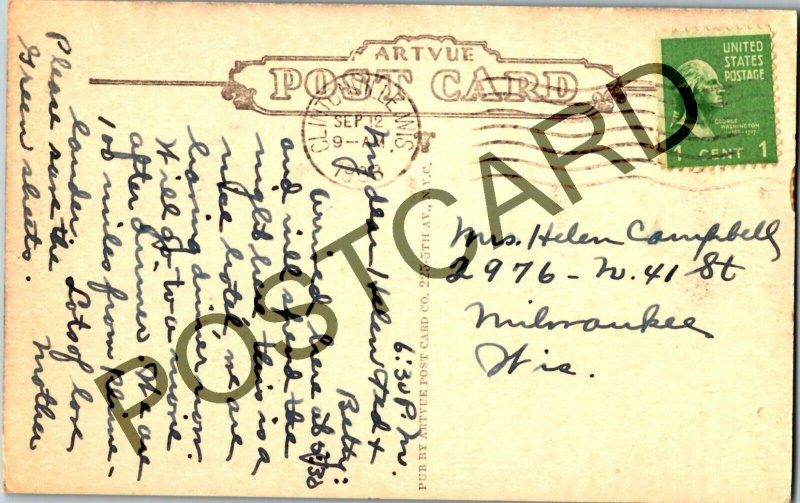 ARTVUE
POST CARD
UNITED
STATES
POSTAGE
GEORGE
WASHINGTON
1 CENT 1
CLINTONVILLE, WIS.
SEP 12
9-AM
POSTCARD
PUB BY ARTVUE POST CARD CO. 225-5TH AV., N.Y.C.
6:30 P.M.
My dear Helen Ted &
Betty:
Arrived here at 5:30
and will spend the
night here. This is a
nice hotel, we are
having dinner now.
Will go to a movie
after dinner. We are
100 miles from
lander. Lots of love,
Mother
Please save the
green sheets.
Mrs. Helen Campbell
2976-N. 41 St
Milwaukee
Wis.